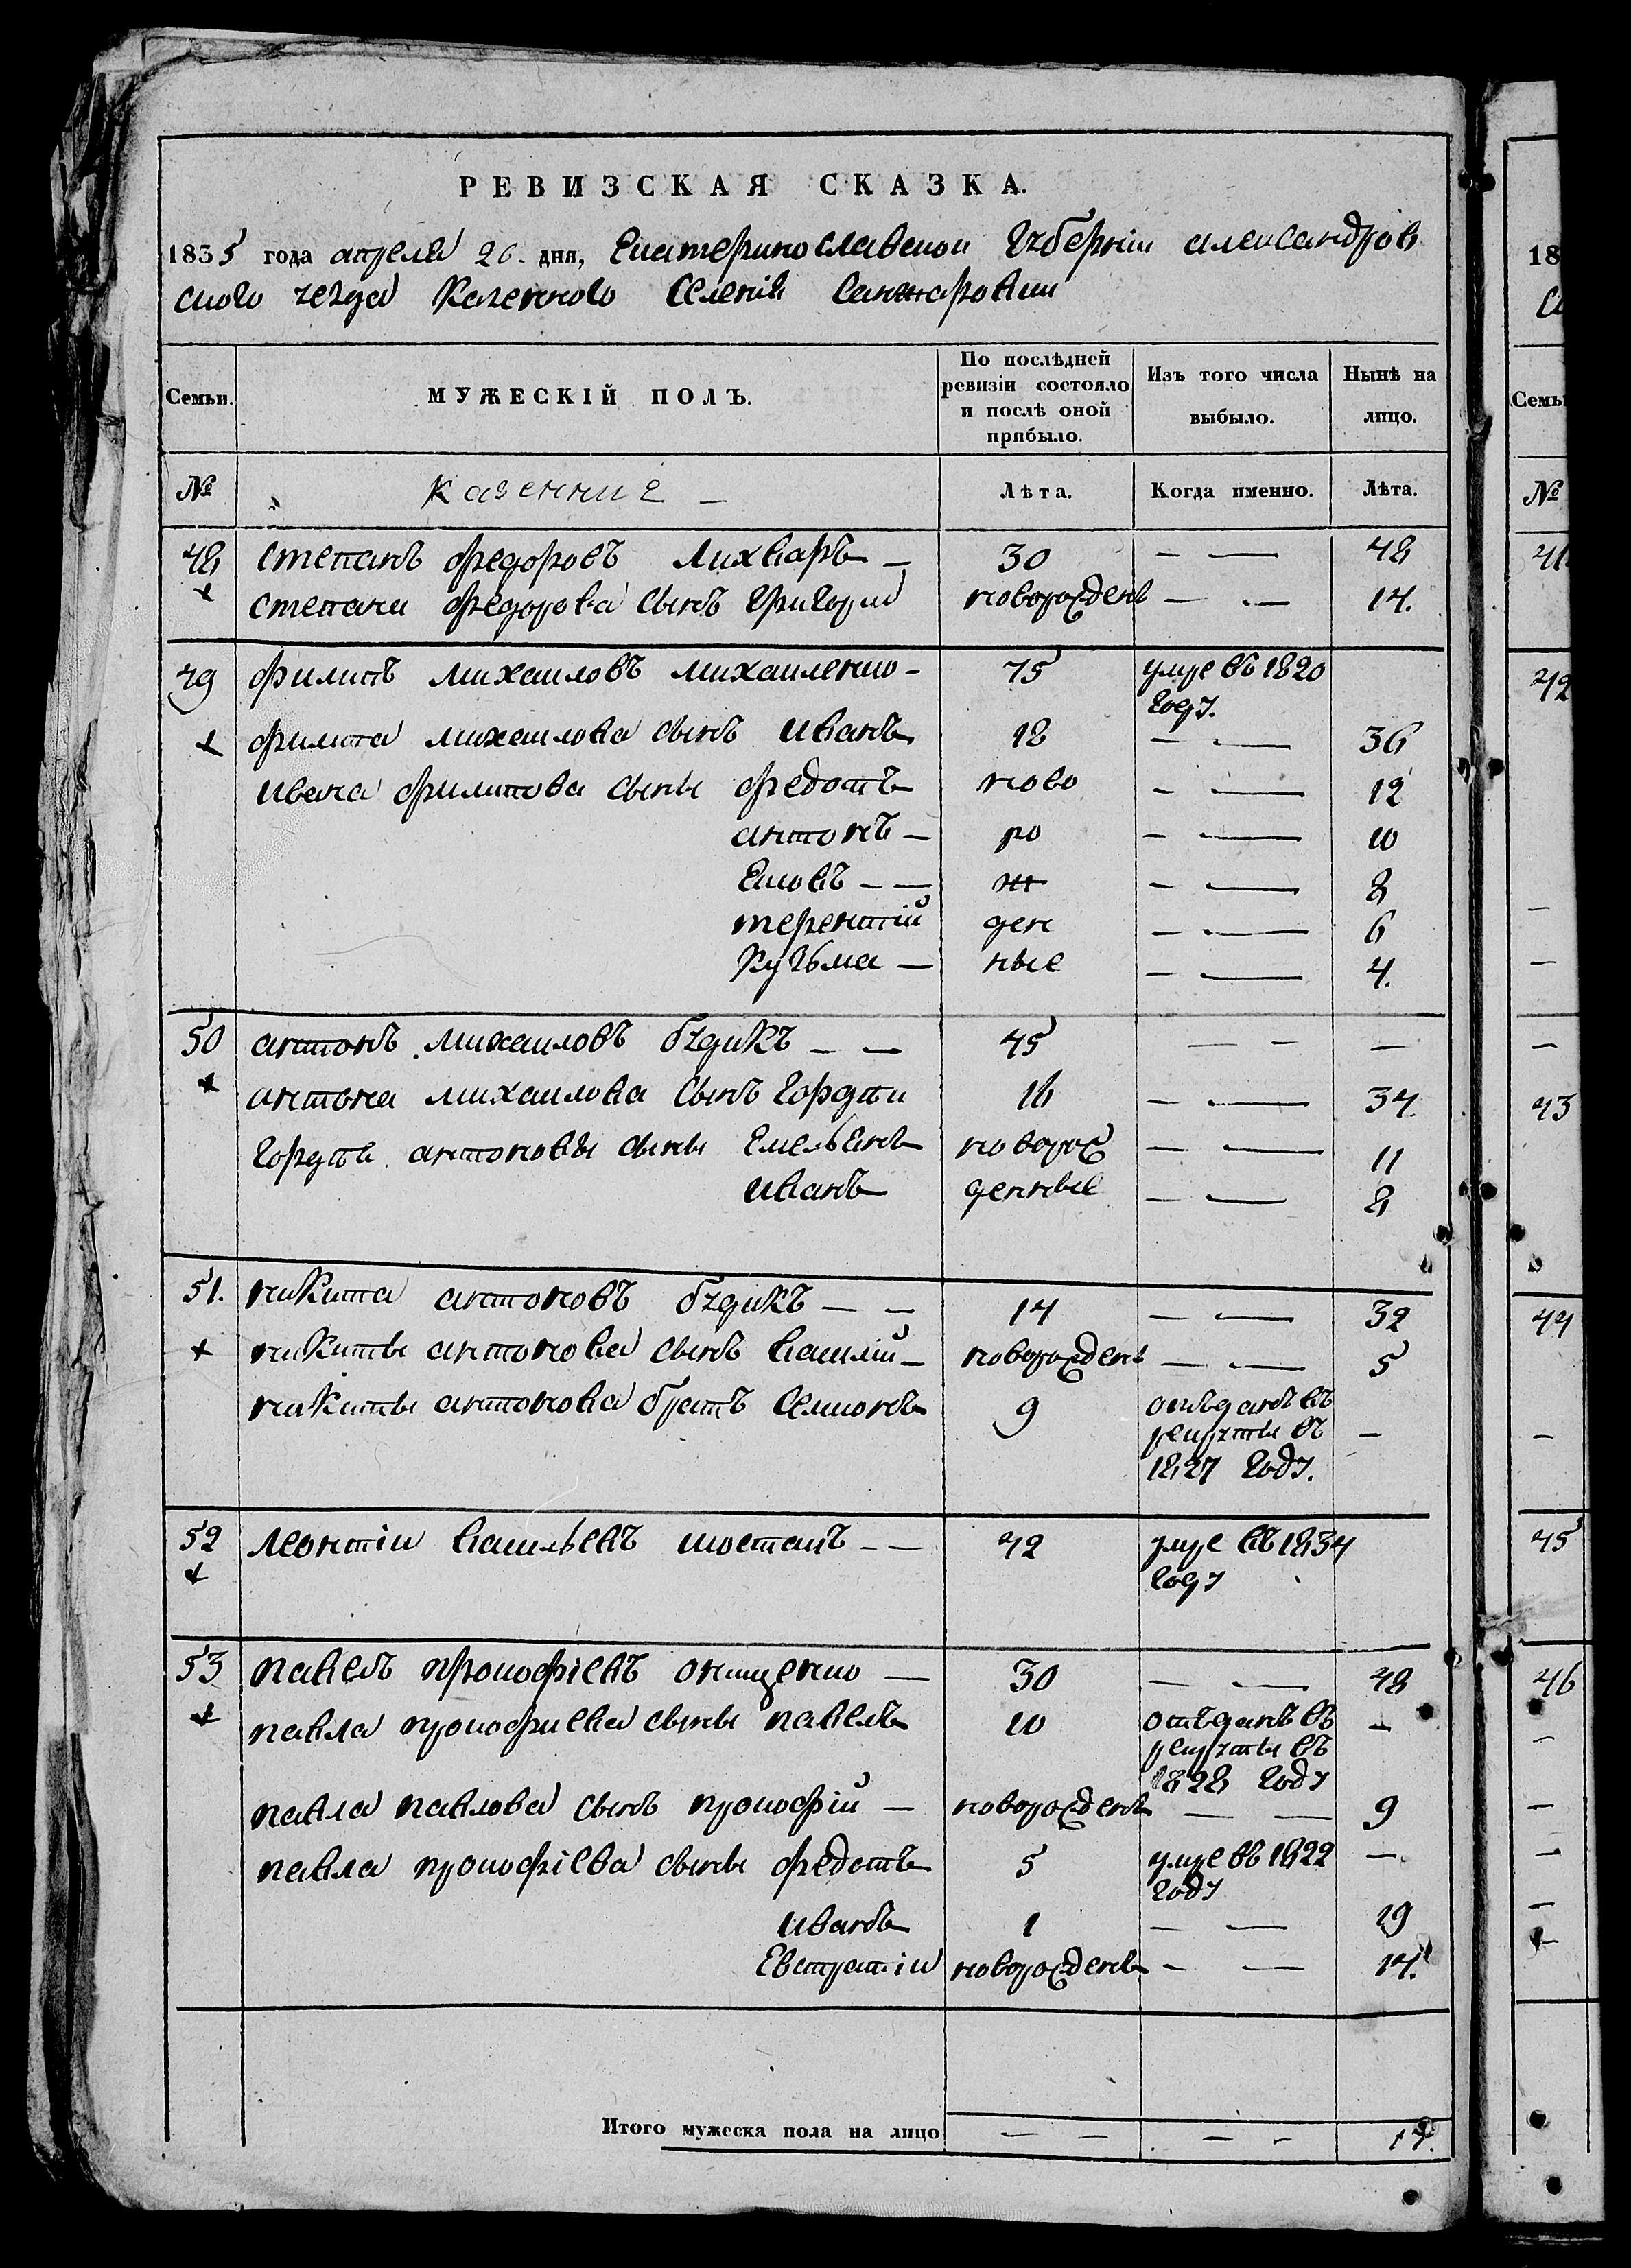 РЕВИЗСКАЯ СКАЗКА.
1835 года апреля 26. дня, Екатеринославской Губернии александров
ского уезда Казенного Селенія Санжаровки
Семьи. МУЖЕСКІЙ ПОЛЪ. По послѣдней ревизіи состояло и послѣ оной прибыло. Изъ того числа выбыло. Нынѣ на лицо.
№ казенние — Лѣта. Когда именно. Лѣта.
48 степанъ федоровъ Лихваръ — 30 — — 48
+ степана федорова сынъ григории новорожденъ — — 14.
49 филипъ михаиловъ михаиленко - 75 умре въ 1820
году.
+ филипа михаилова сынъ иванъ 18 — — 36
ивана филипова сыны федотъ ново — — 12
антонъ — ро — — 10
Яковъ — — ж — — 8
терентій ден — — 6
Кузьма — ные — — 4.
50 антонъ михаиловъ будикъ — — 45 — — —
+ антона михаилова сынъ Гордѣи 16 — — 34.
Гордѣя антоновы сыны Емельянъ новорож — — 11
иванъ денные — — 8
51. никита антоновъ будикъ — — 14 — — 32
+ никиты антонова сынъ василій — новорожденъ — — 5
никиты антонова братъ Семионъ 9 отъданъ въ
рекруты въ —
1827 году.
52 леонтіи васильевъ шостакъ — — 42 умре въ 1834
+ году
53 павелъ прокофіевъ онищенко — 30 — — 48
+ павла прокофиева сыны павелъ 10 отъданъ въ —
рекруты въ
1828 году
павла павлова сынъ прокофій — новорожденъ — — 9
павла прокофіева сыны федотъ 5 умре въ 1822 —
году
иванъ 1 — — 19
Евстратіи новорожденъ — — 14.
Итого мужеска пола на лицо — — — — 17.
18
Семьи
№
41
42
43
44
45
46